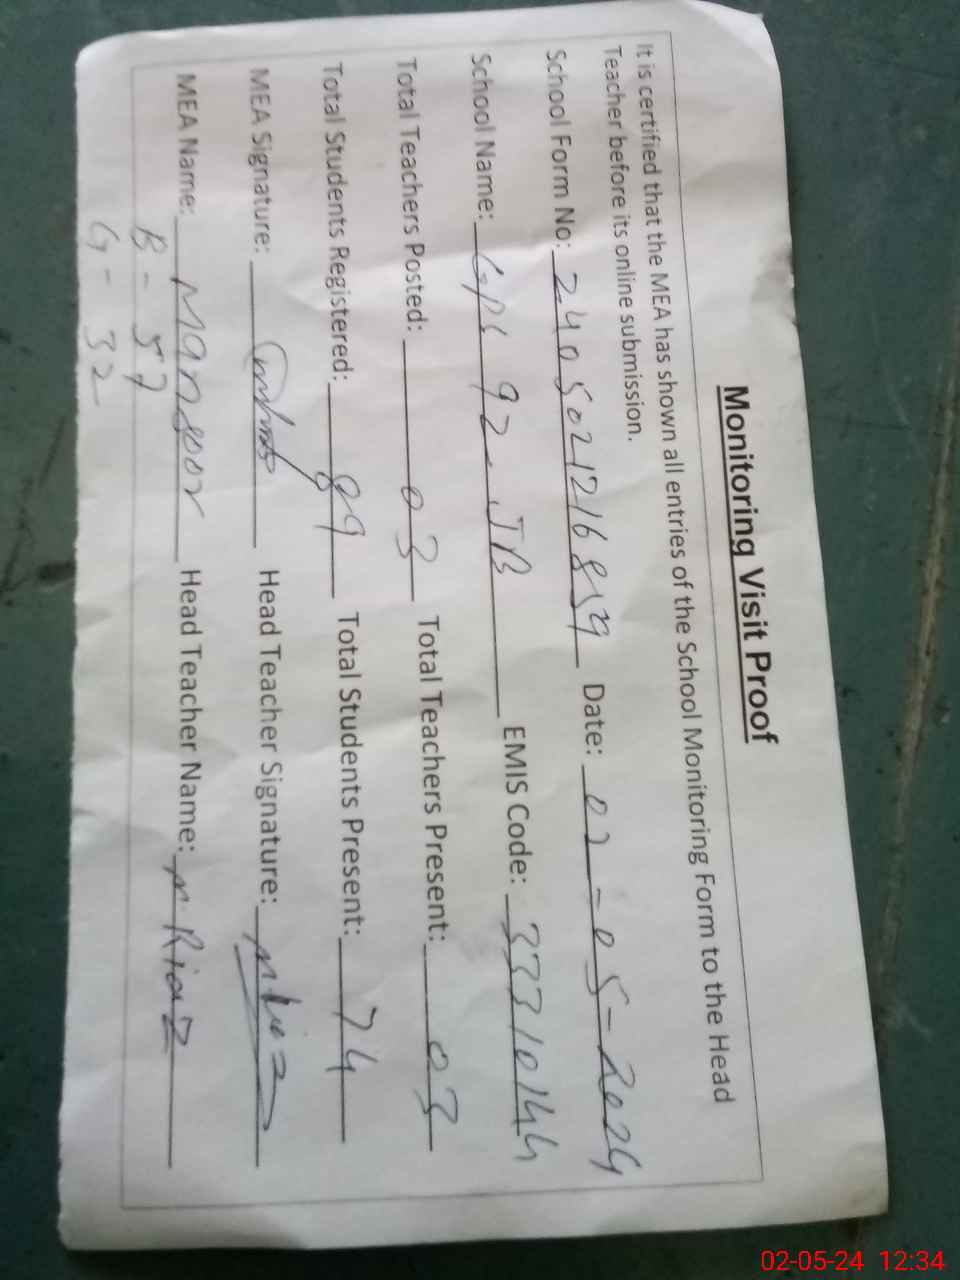 Monitoring Visit Proof
It is certified that the MEA has shown all entries of the School Monitoring Form to the Head
Teacher before its online submission.
School Form No: 2405021216859 Date: 02-05-2024
School Name: GPS 92-JB EMIS Code: 33310144
Total Teachers Posted: 03 Total Teachers Present: 03
Total Students Registered: 89 Total Students Present: 74
MEA Signature: Head Teacher Signature:
MEA Name: Mansoor Head Teacher Name: M. Riaz
B - 57
G - 32
02-05-24 12:34